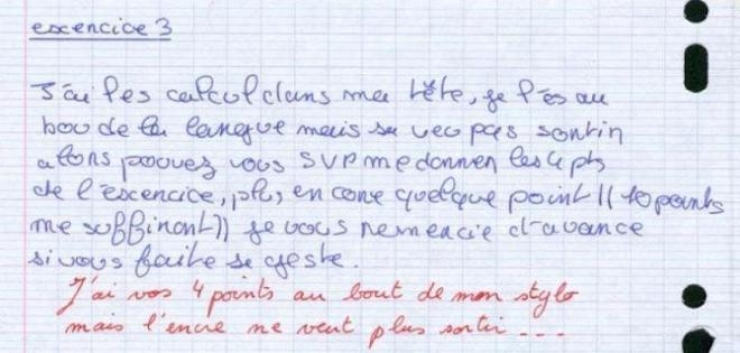 excencice 3
J'ai les calcul dans ma tête, je l'es au
bou de la langue mais sa veu pas sontin
alons pouvez vous SVP me donnen les 4 pts
de l'excencice, plus encone quelque point ((10 points
me suffinont)) je vous nemencie d'avance
si vous faite se geste.
J'ai vos 4 points au bout de mon stylo
mais l'encre ne veut plus sortir ...